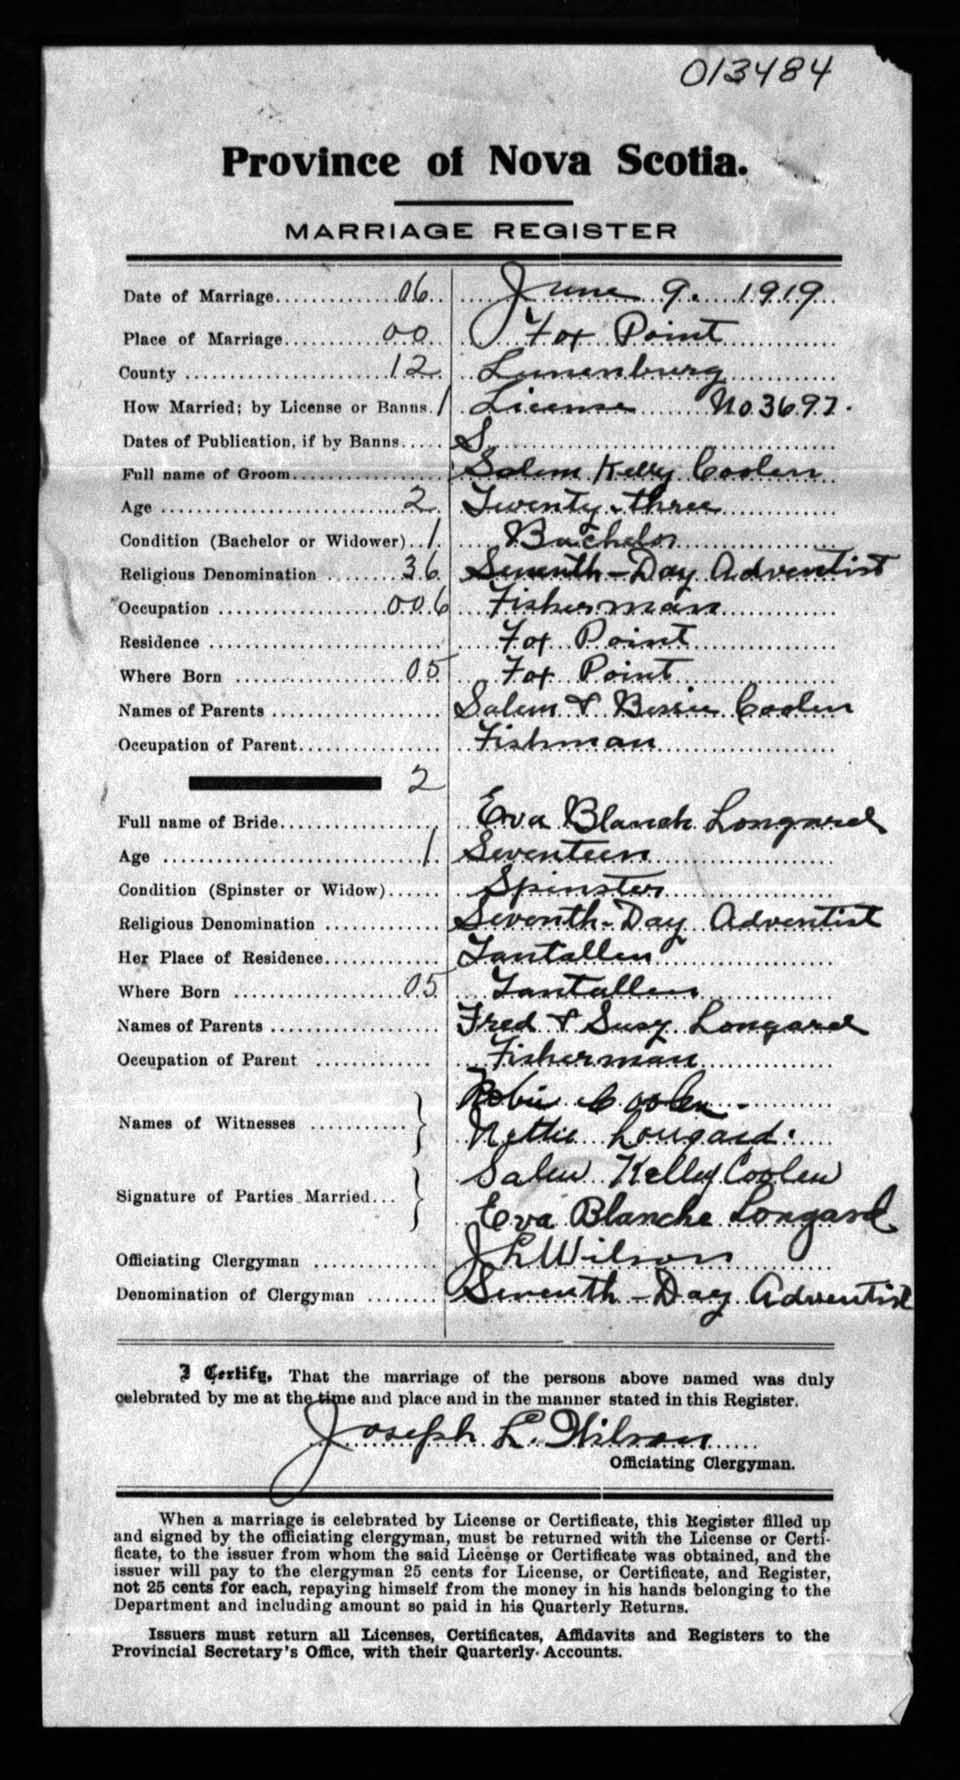 013484
Province of Nova Scotia.
MARRIAGE REGISTER
Date of Marriage............06.. June 9. 1919
Place of Marriage............00.. Fox Point
County ............12 Lunenburg
How Married; by License or Banns.1 License No. 3697.
Dates of Publication, if by Banns..... S
Full name of Groom............ Salem Kelly Coolen
Age ............2. Twenty-three
Condition (Bachelor or Widower)..1. Bachelor
Religious Denomination .......36. Seventh-Day Adventist
Occupation ............006 Fisherman
Residence ............ Fox Point
Where Born ............05 Fox Point
Names of Parents ............ Salem & Bessie Coolen
Occupation of Parent............ Fishman
2
Full name of Bride............ Eva Blanch Longard
Age ............1. Seventeen
Condition (Spinster or Widow)...... Spinster
Religious Denomination ............ Seventh-Day Adventist
Her Place of Residence............ Tantallen
Where Born ............05 Tantallen
Names of Parents ............ Fred & Susy Longard
Occupation of Parent ............ Fisherman
Names of Witnesses ............ Coolen.
Nettie Longard.
Signature of Parties Married... Salem Kelley Coolen
Eva Blanche Longard
Officiating Clergyman ............ J L Wilson
Denomination of Clergyman ........ Seventh-Day Adventist
I Certify, That the marriage of the persons above named was duly
celebrated by me at the time and place and in the manner stated in this Register.
Joseph L. Wilson
Officiating Clergyman.
When a marriage is celebrated by License or Certificate, this Register filled up
and signed by the officiating clergyman, must be returned with the License or Certi-
ficate, to the issuer from whom the said License or Certificate was obtained, and the
issuer will pay to the clergyman 25 cents for License, or Certificate, and Register,
not 25 cents for each, repaying himself from the money in his hands belonging to the
Department and including amount so paid in his Quarterly Returns.
Issuers must return all Licenses, Certificates, Affidavits and Registers to the
Provincial Secretary's Office, with their Quarterly Accounts.